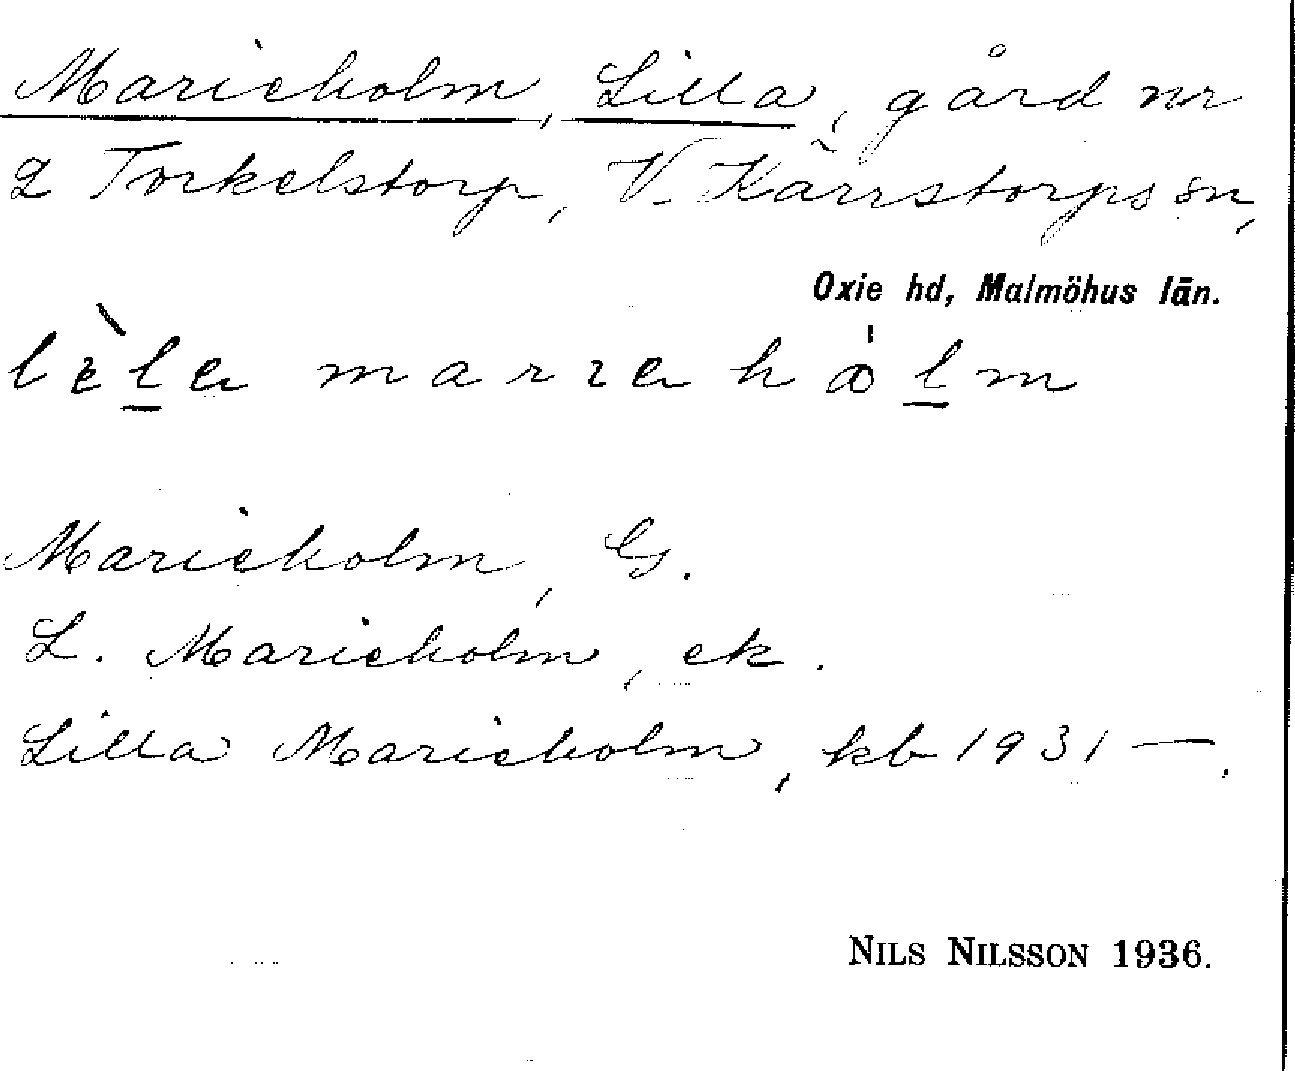 Marieholm, Lilla, gård nr
2 Torkelstorp, V. Kärrstorps sn,
Oxie hd, Malmöhus län.
Marieholm, G.
L. Marieholm, ek.
Lilla Marieholm, kb 1931 —.
NILS NILSSON 1936.